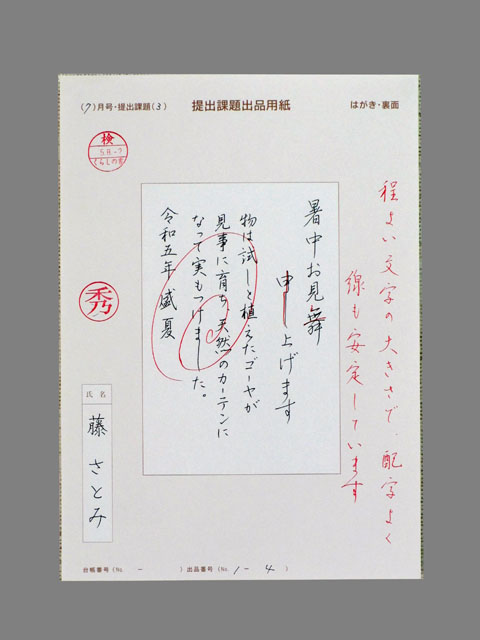 (7)月号・提出課題(3)
提出課題出品用紙
はがき・裏面
検
5.8.-7
くらしの書
程よい文字の大きさで、配字よく
線も安定しています
暑中お見舞
申し上げます
物は試しと植えたゴーヤが
見事に育ち、天然のカーテンに
なって実もつけました。
令和五年 盛夏
秀
氏名
藤 さとみ
台帳番号(No. - )出品番号(No. 1-4 )